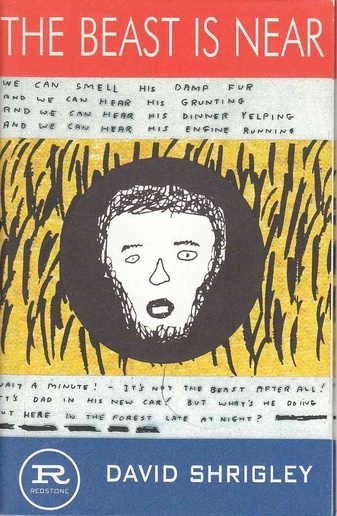 THE BEAST IS NEAR
WE CAN SMELL HIS DAMP FUR
AND WE CAN HEAR HIS GRUNTING
AND WE CAN HEAR HIS DINNER YELPING
AND WE CAN HEAR HIS ENGINE RUNNING
WAIT A MINUTE! - IT'S NOT THE BEAST AFTER ALL!
IT'S DAD IN HIS NEW CAR! BUT WHAT'S HE DOING
OUT HERE IN THE FOREST LATE AT NIGHT?
R
REDSTONE
DAVID SHRIGLEY